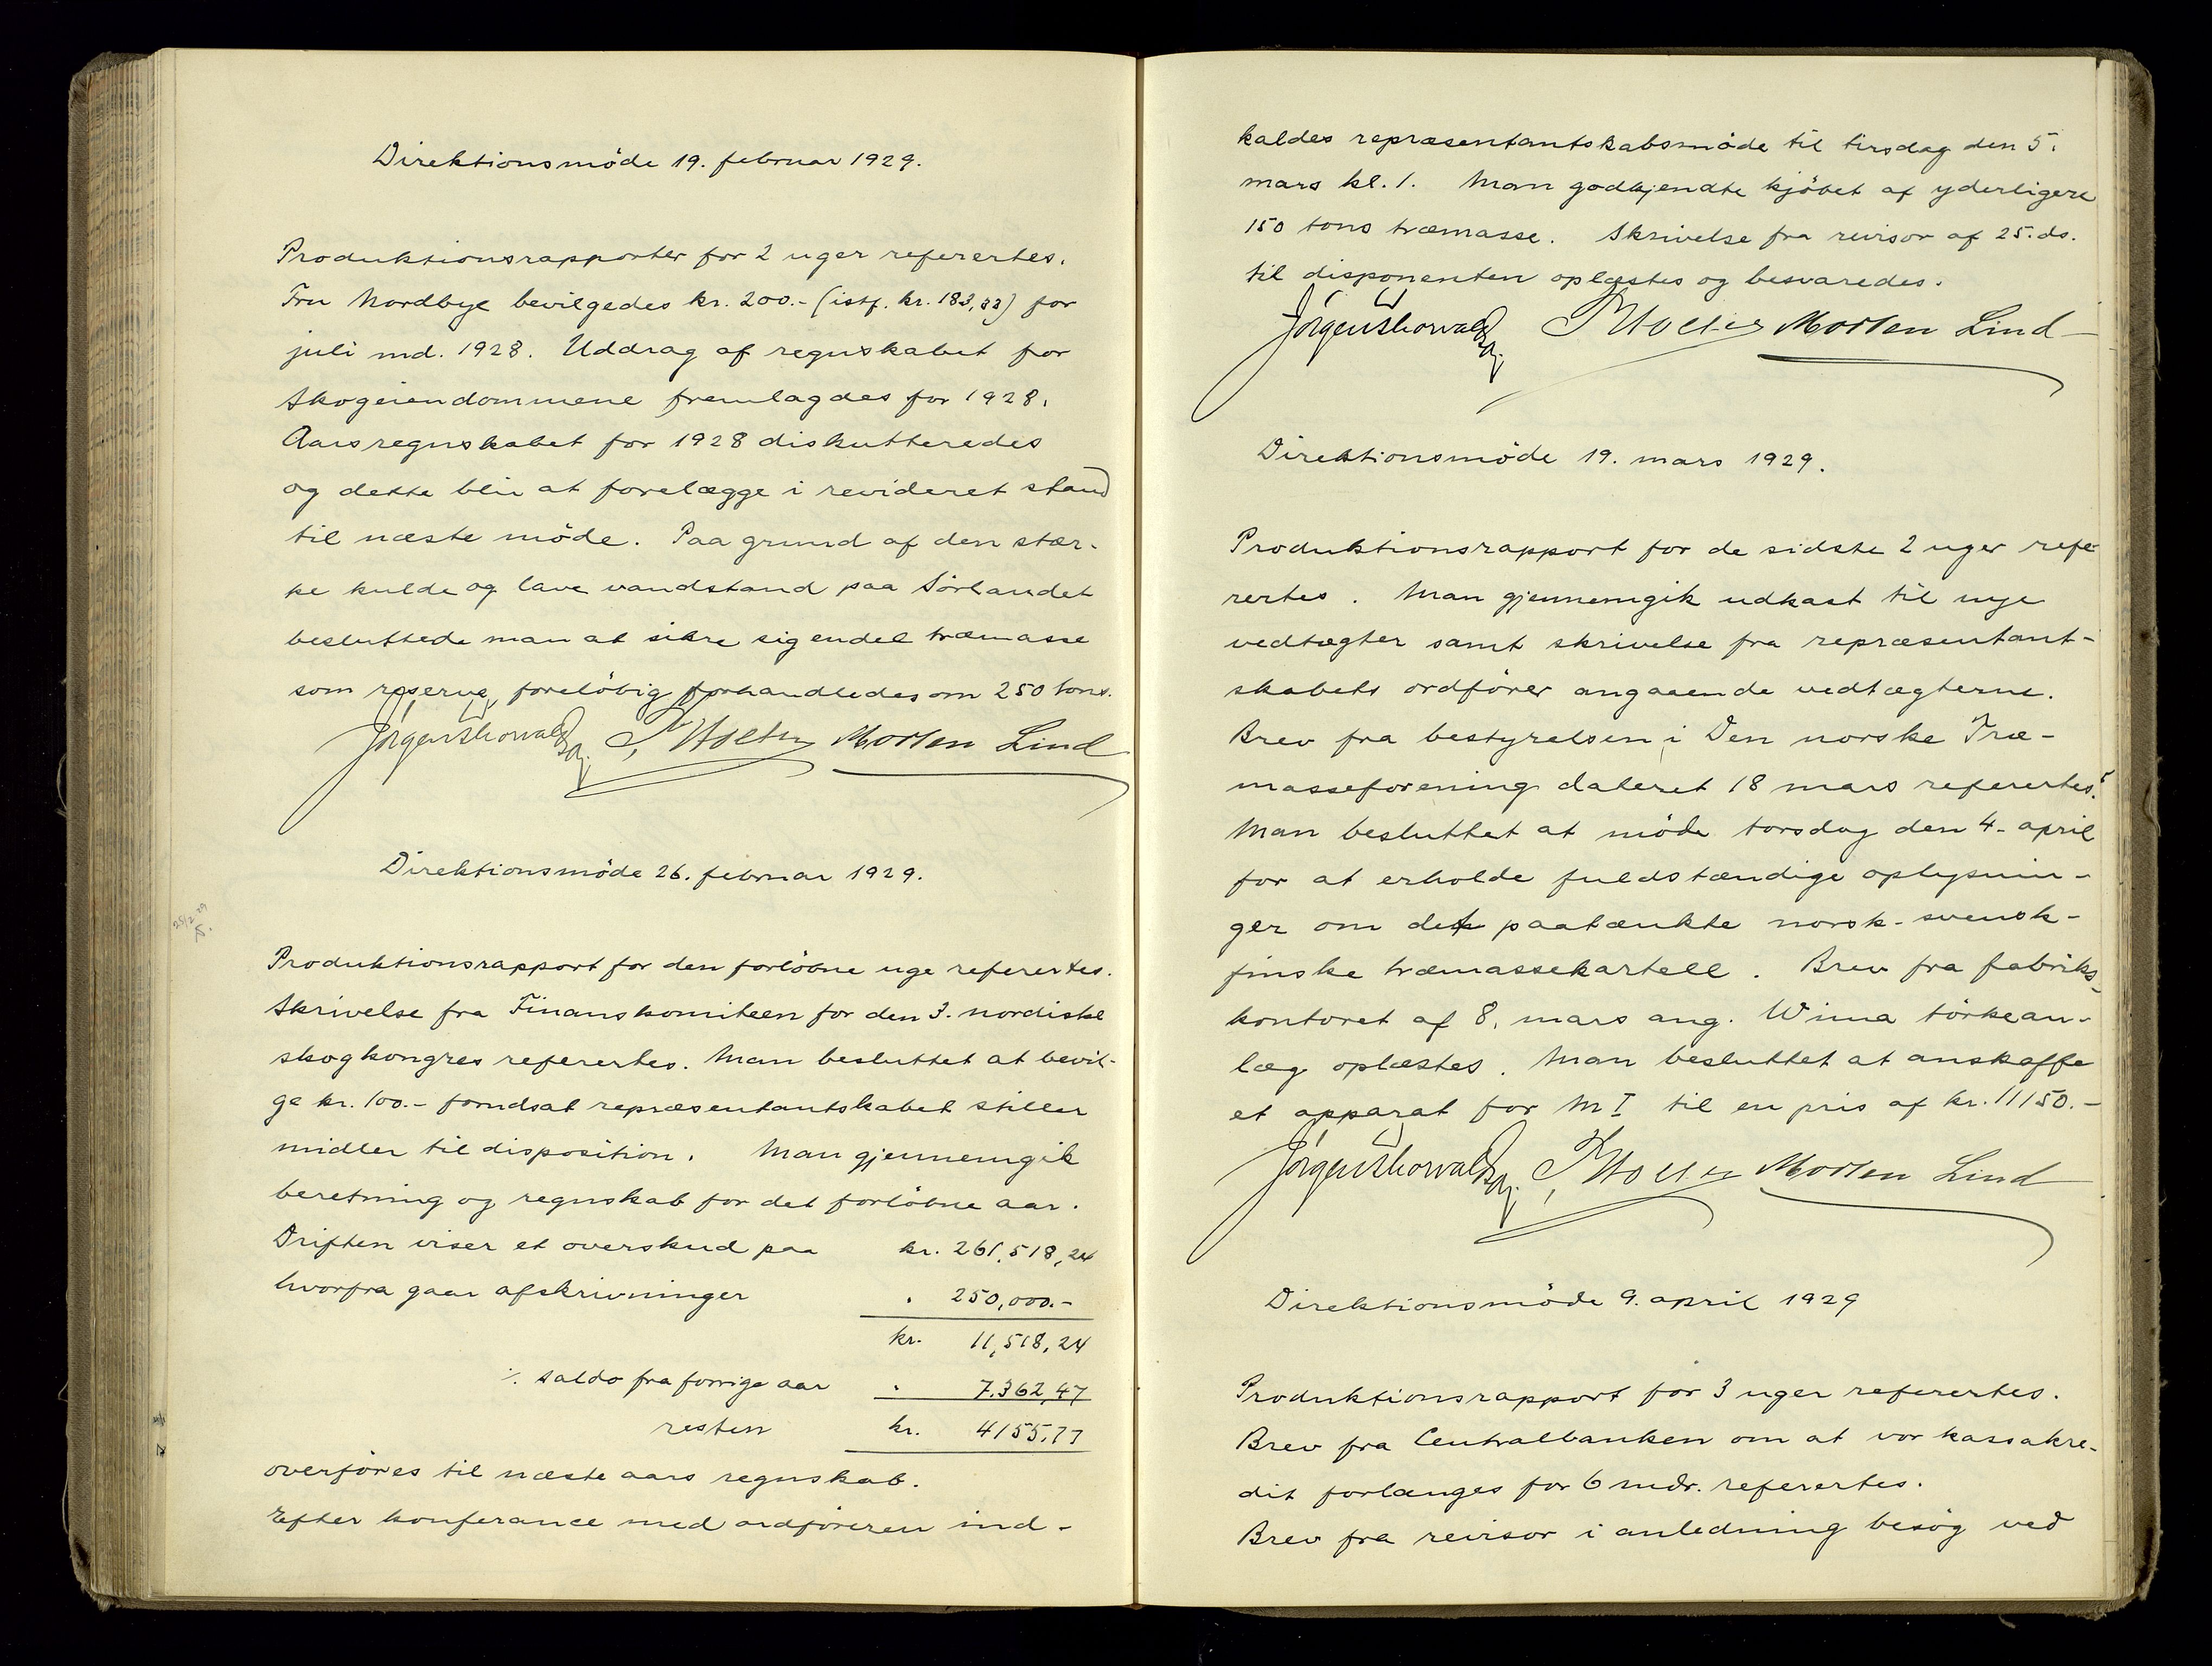 Direktionsmöde 19. februar 1929.
Produktionsrapporter for 2 uger referertes.
Fru Nordbye bevilgedes kr. 200.- (istf. kr. 183,33) for
juli md. 1928. Uddrag af regnskabet for
Skogeiendommene fremlagdes for 1928.
Aarsregnskabet for 1928 diskutteredes
og dette blir at forelægge i revideret stand
til næste möde. Paa grund af den stær-
ke kulde og lave vandstand paa Sörlandet
besluttede man at sikre sig endel træmasse
som reserve, foreløbig forhandledes om 250 tons.
Morten Lind
Direktionsmöde 26. februar 1929.
25/2 29
Produktionsrapport for den forlöbne uge referertes.
Skrivelse fra Finanskomiteen for den 3. nordiske
skogkongres referertes. Man besluttet at bevil-
ge kr. 100.- forudsat repræsentantskabet stiller
midler til disposition. Man gjennemgik
beretning og regnskab for det forlöbne aar.
Driften viser et overskud paa kr. 261,518,24
hvorfra gaar afskrivninger " 250,000.-
kr. 11,518,24
÷ saldo fra forrige aar " 7.362,47
resten kr. 4155,77
overføres til næste aars regnskab.
Efter konferance med ordföreren ind-
kaldes repræsentantskabsmöde til tirsdag den 5.
mars kl. 1. Man godkjendte kjöbet af yderligere
150 tons træmasse. Skrivelse fra revisor af 25. ds.
til disponenten oplæstes og besvaredes.
Morten Lind
Direktionsmöde 19. mars 1929.
Produktionsrapport for de sidste 2 uger refe-
rertes. Man gjennemgik udkast til nye
vedtægter samt skrivelse fra repræsentant-
skabets ordförer angaaende vedtægterne.
Brev fra bestyrelsen i Den norske Træ-
masseforening dateret 18 mars referertes.
Man besluttet at möde torsdag den 4. april
for at erholde fuldstændige oplysnin-
ger om det paatænkte norsk-svensk-
finske træmassekartell. Brev fra fabriks-
kontoret af 8. mars ang. Winna törkean-
læg oplæstes. Man besluttet at anskaffe
et apparat for M I til en pris af kr. 11150.-
Morten Lind
Direktionsmöde 9. april 1929
Produktionsrapport for 3 uger referertes.
Brev fra Centralbanken om at vor kassakre-
dit forlænges for 6 mdr. referertes.
Brev fra revisor i anledning besög ved